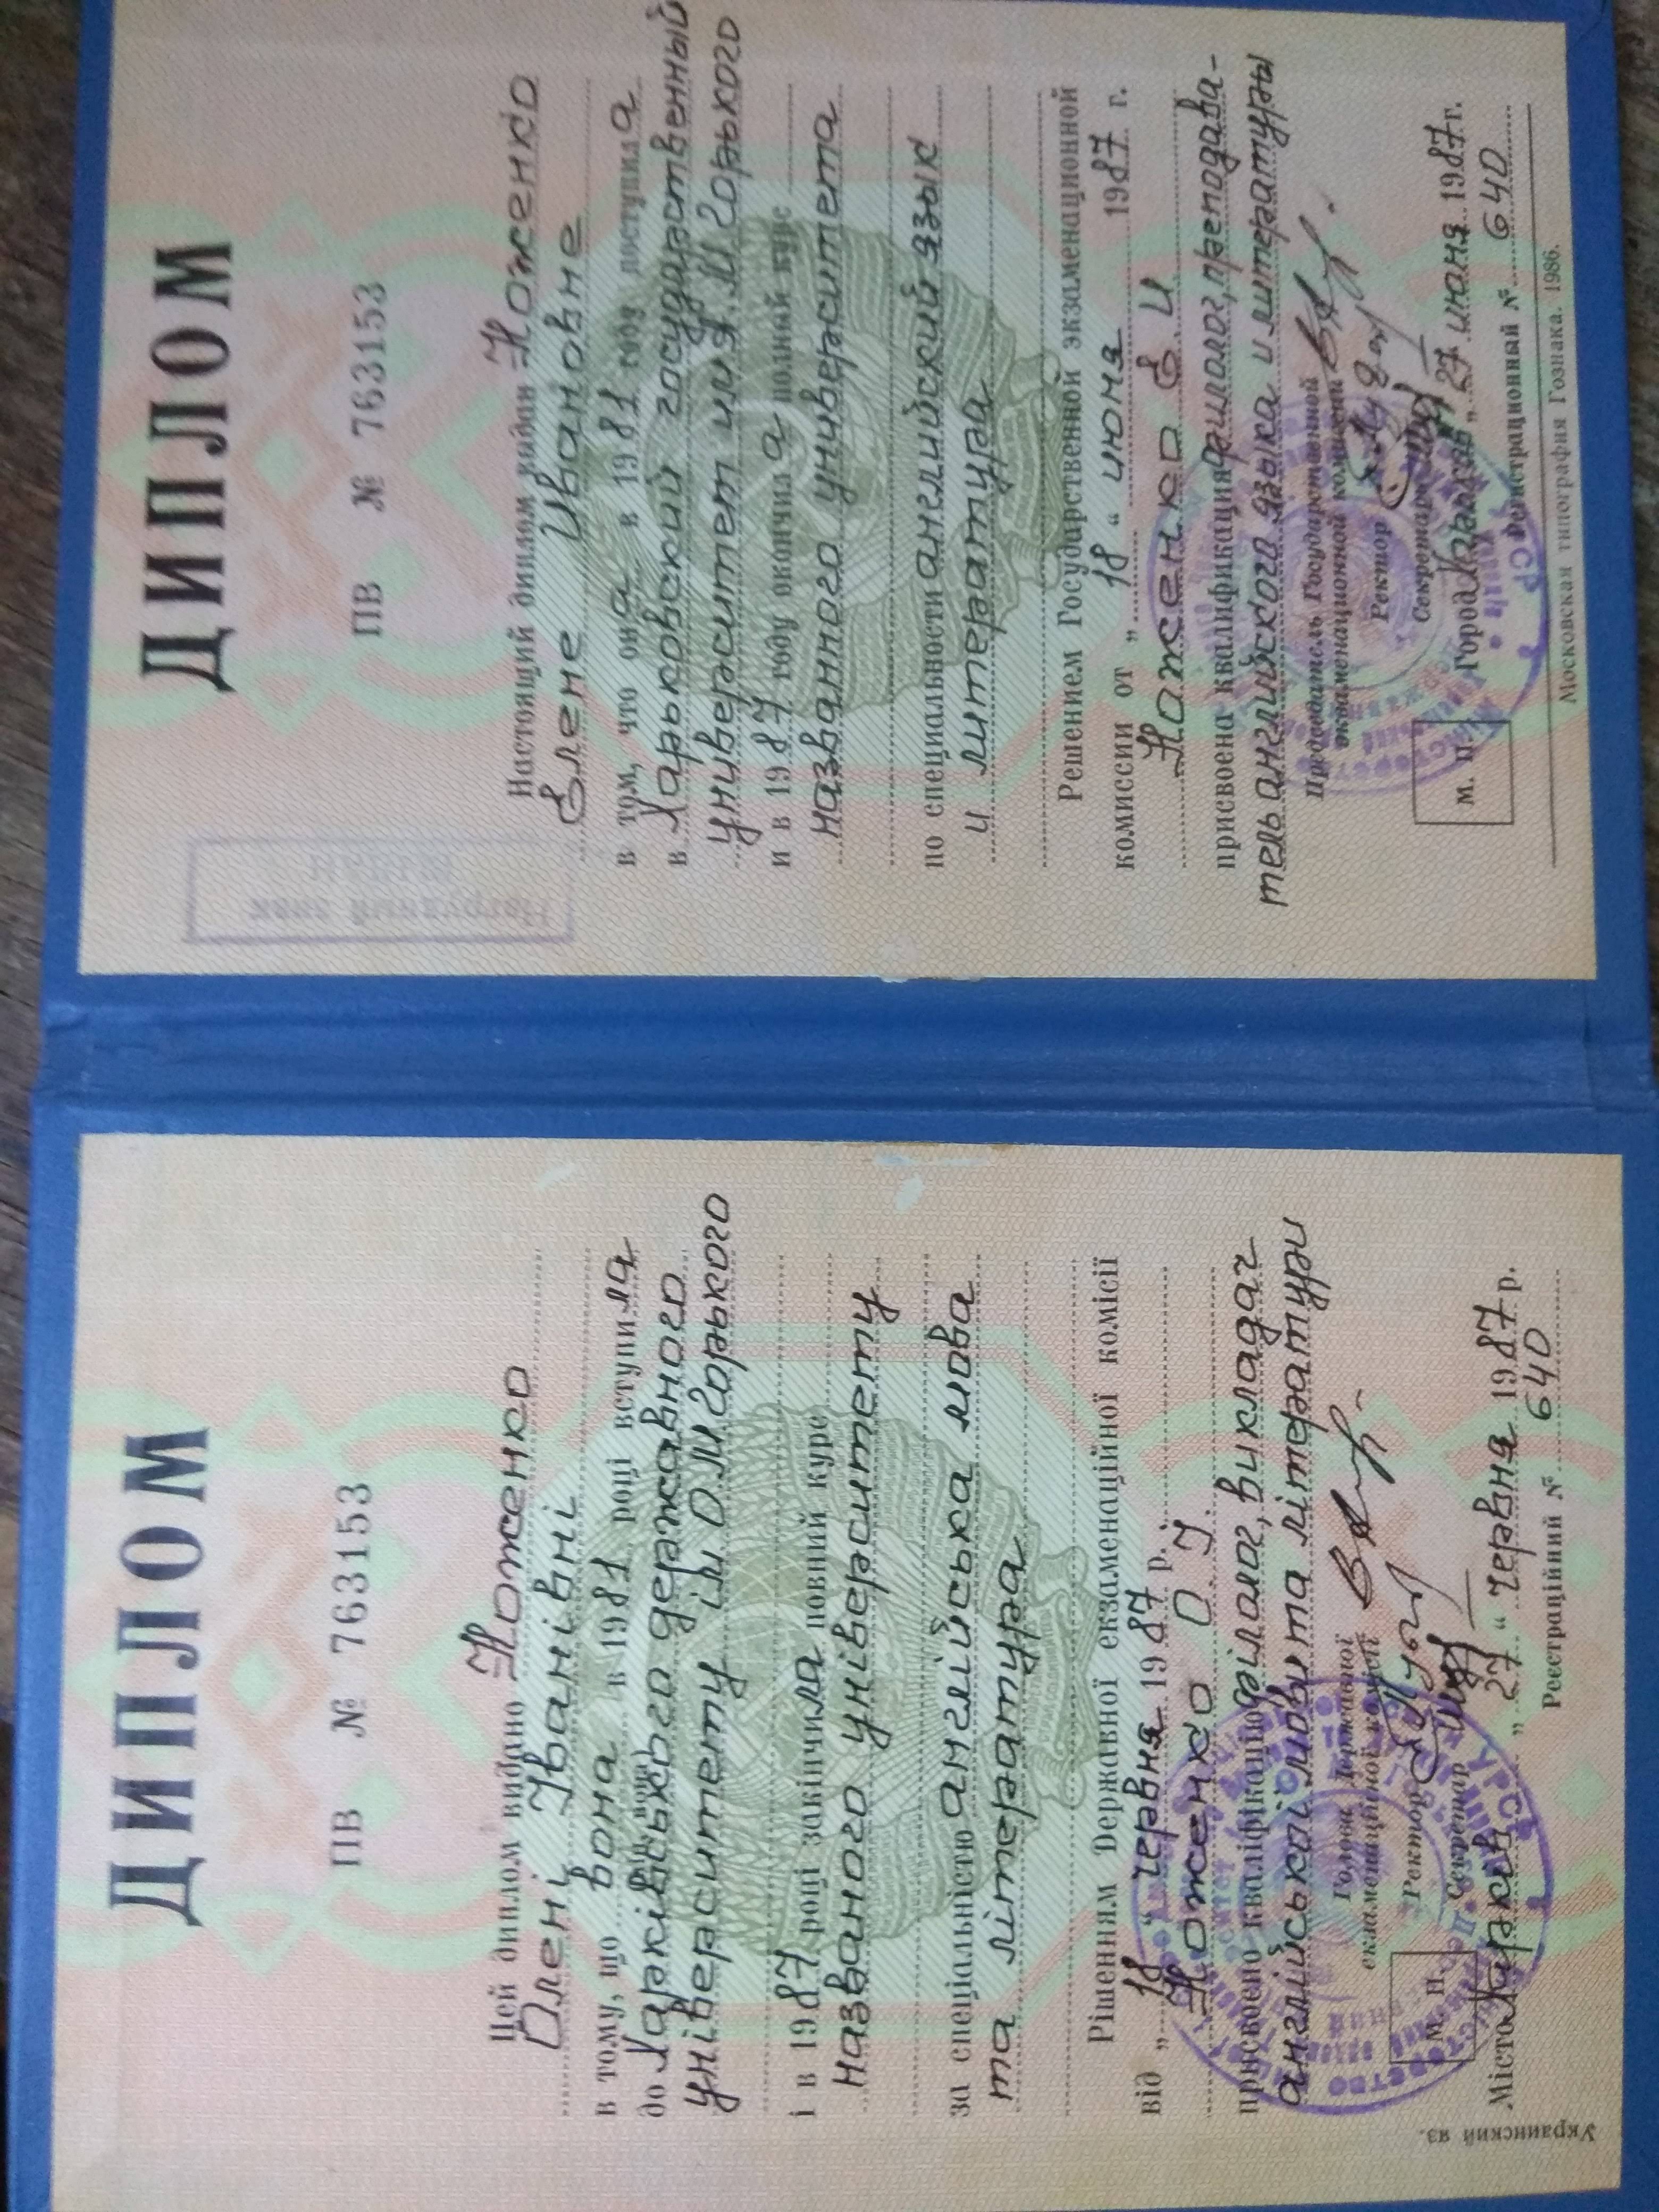 ДИПЛОМ
ПВ № 763153
Цей диплом видано Ноженко
Олені Іванівні
в тому, що вона в 1981 році вступила
до Харківського державного
університету ім О.М Горького
і в 1987 році закінчила повний курс
названого університету
за спеціальністю англійська мова
та література
Рішенням Державної екзаменаційної комісії
від „18“ червня 1987 р.
Ноженко О І
присвоєно кваліфікацію філолог, викладач
англійської мови та літератури
Голова Державної
екзаменаційної комісії
Ректор
Секретар
М. П.
Місто Харків „27“ червня 1987 р.
Реєстраційний № 640
Украинский яз.
ДИПЛОМ
ПВ № 763153
Нагрудный знак
Настоящий диплом выдан Ноженко
Елене Ивановне
в том, что она в 1981 году поступила
в Харьковский государственный
университет им А.М Горького
и в 1987 году окончила полный курс
названного университета
по специальности английский язык
и литература
Решением Государственной экзаменационной
комиссии от „18“ июня 1987 г.
Ноженко Е И
присвоена квалификация филолог, преподава-
тель английского языка и литературы
Председатель Государственной
экзаменационной комиссии
Ректор
Секретарь
М. П.
Город Харьков „27“ июня 1987 г.
Регистрационный № 640
Московская типография Гознака. 1986.